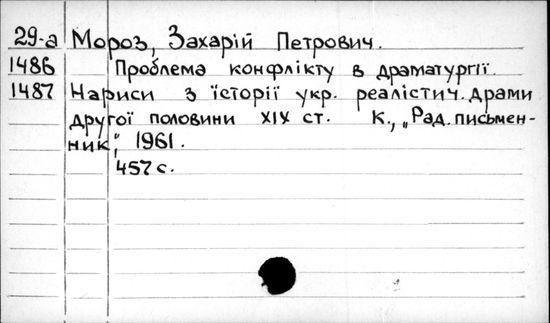 29-а Мороз, Захарій Петрович.
1486 Проблема конфлікту в драматургії.
1487 Нариси з їсторії укр. реалістич. драми
другої половини XIX ст. К., „Рад. письмен-
ник", 1961.
457 с.